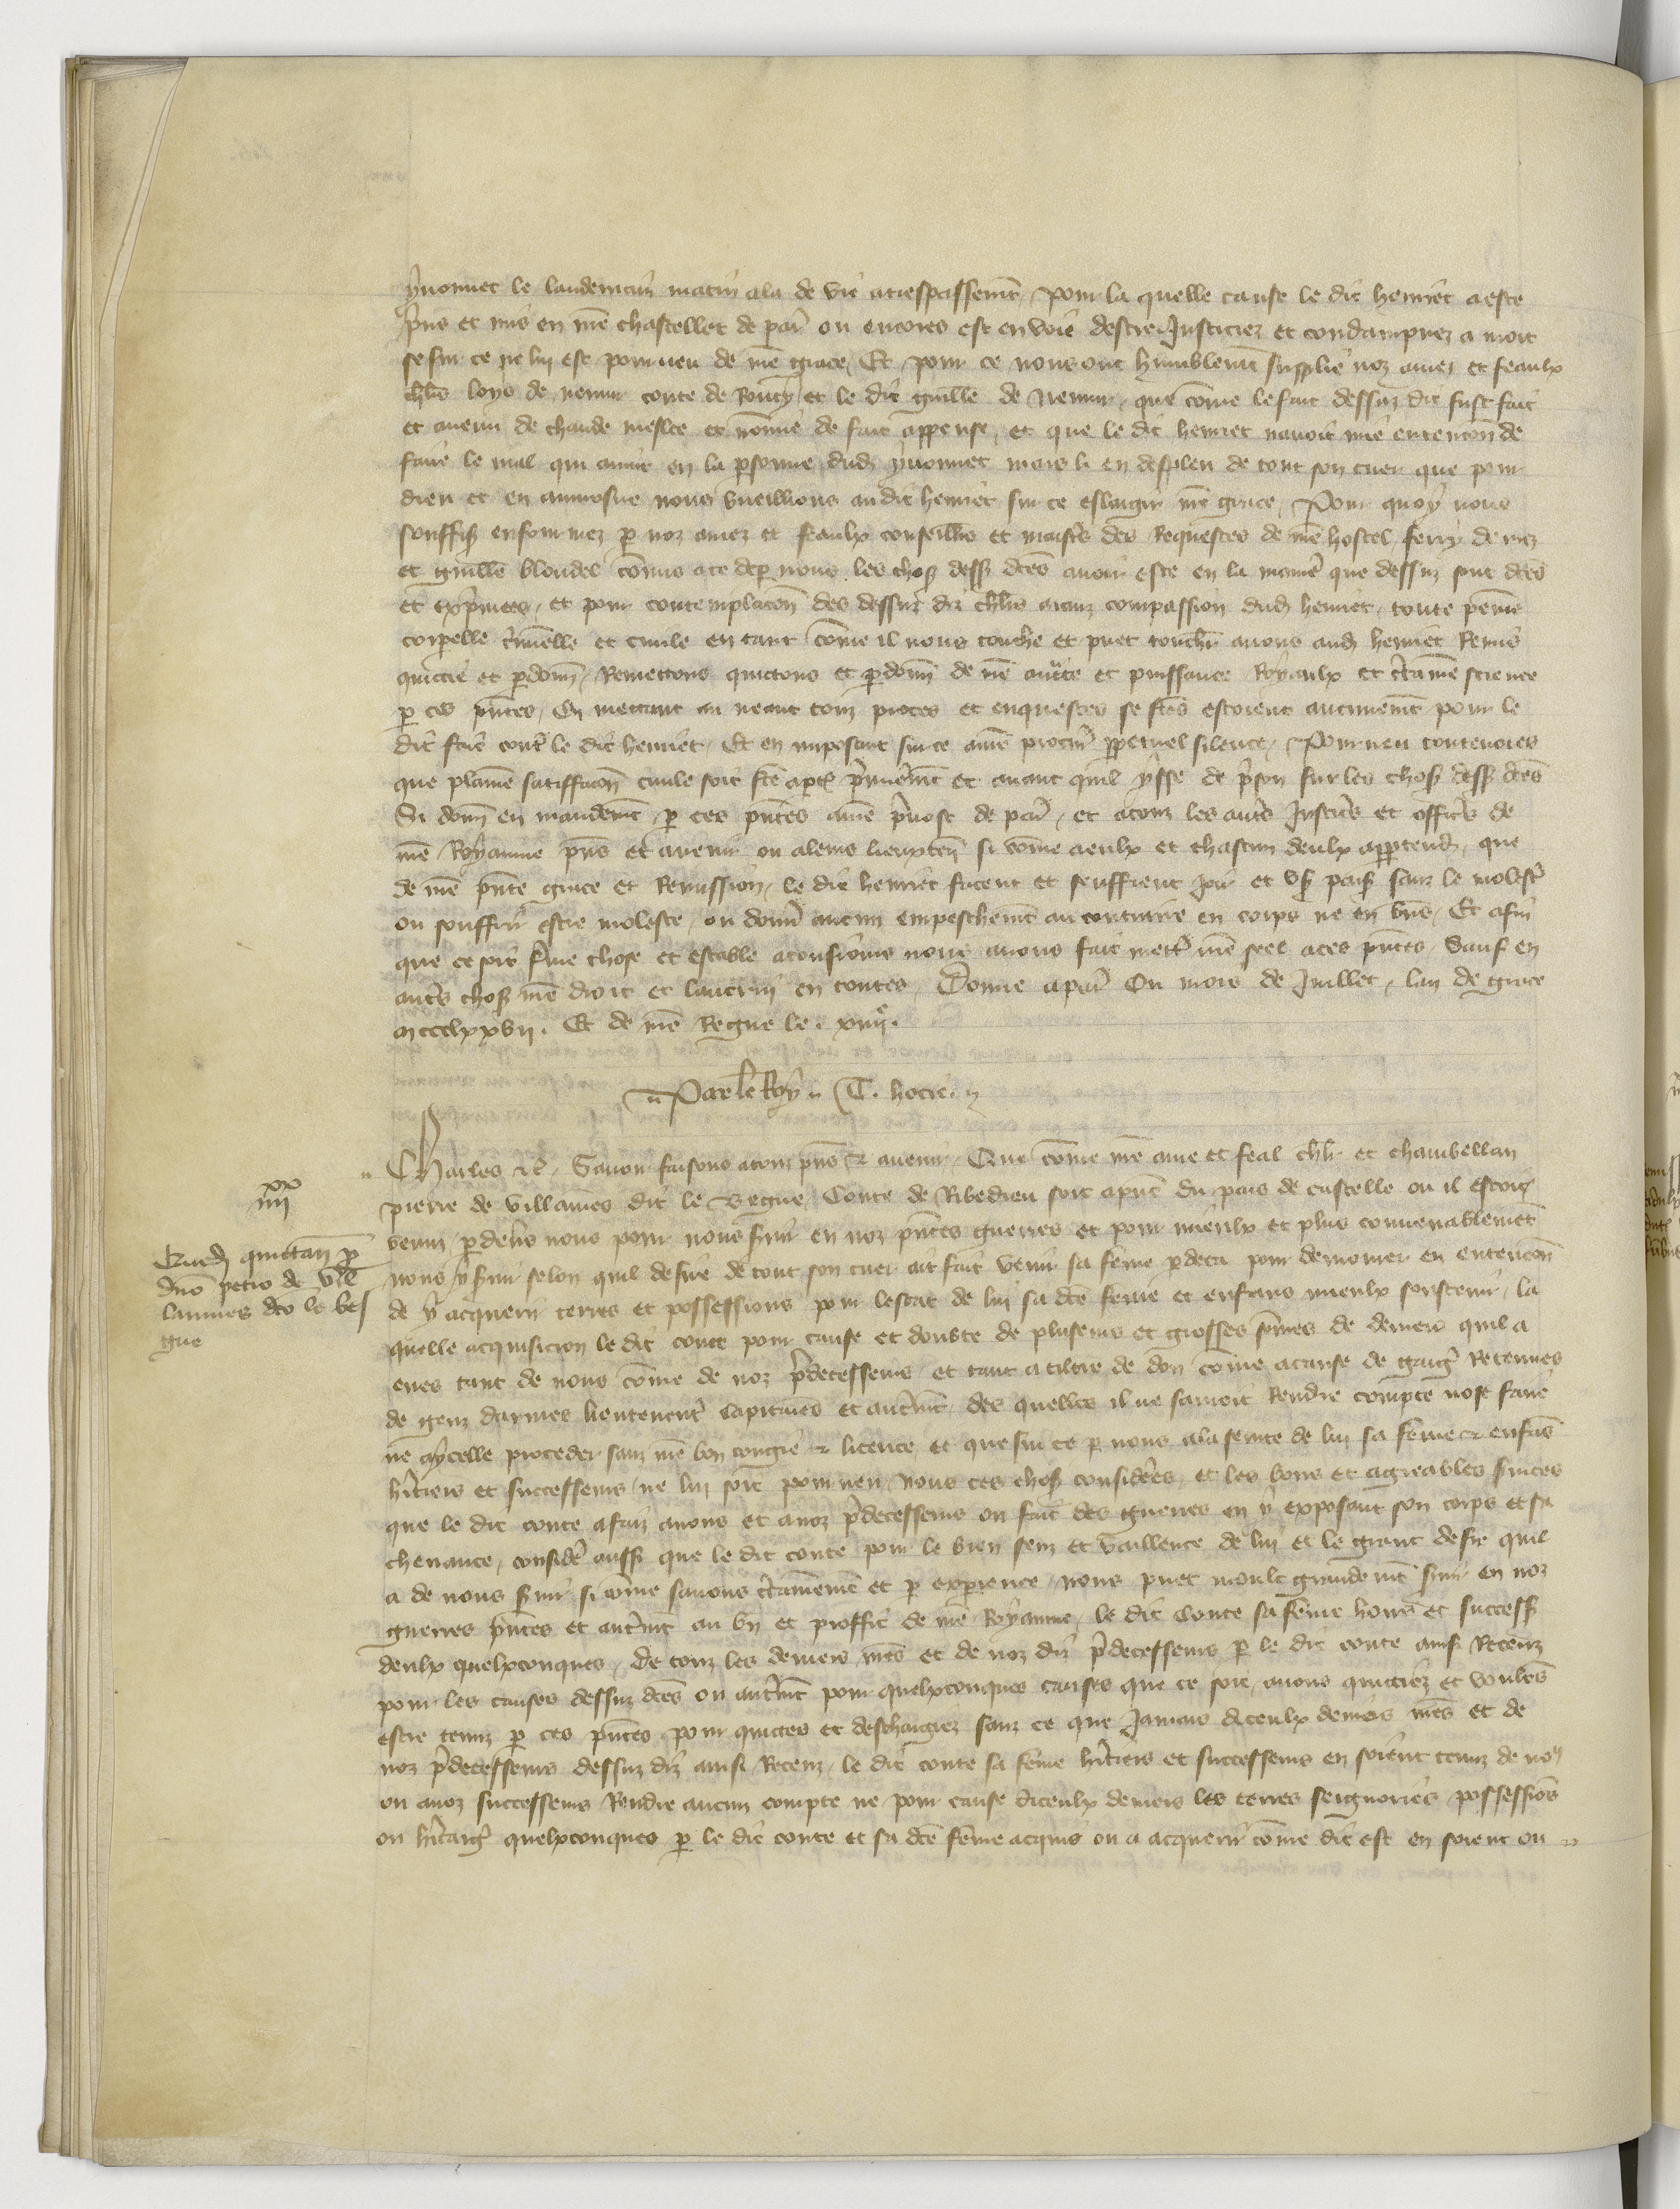 yvonnet le landemain matin ala de vie a trespassemt Pour la quelle cause le dit henriet a este
pris et mis en nre chastellet de par ou encores est en voie destre Justiciez et condampnez a mort
se sur ce ne lui est pourveu de nre grace Et pour ce nous ont humblemt supplie noz amez et feaulx
chlrs loys de nemur conte de Roucy et le dit guille de Nemur que come le fait dessuz dit fust fait
et avenu de chaude meslee et nonmie de fait appense et que le dit henriet navoit mie entencon de
faire le mal qui avint en la psonne dud yvonnet mais li en despleu de tout son cuer que pour
dieu et en aumosne nous vueillions au dit henriet sur ce eslargir nre grace Pour quoy nous
souffis enformez p noz amez et feaulx conseillrs et maistrs des Requestes de nre hostel ferry de mez
et guille blondel comis a ce dep nous les chos dess dces avoir este en la manie que dessuz sont dces
et exprimees et pour contemplacon des dessuz diz chlrs aianz compassion dud henriet toute peine
corpelle criminelle et civile en tant come il nous touche et puet touchr avons aud henriet Remis
quictie et pdonne Remettons quictons et pdonn de nre aucte et puissance Royaulx et ctaine science
p ces pntes En mettant au neant touz proces et enquestes se fces estoient aucunemt pour le
dit fait contre le dit henriet Et en imposant sur ce a nre procur ppetuel silence Pourveu toutevoies
que plaine satiffacon civile soit fce a ptie primieremt et avant quil ysse de prison sur les chos dess dces
Si donn en mandemt p ces pntes a nre prevost de par et a touz les autrs Justicrs et officrs de
nre Royaume pns et avenir ou a leurs lieuxten si come a eulx et chascun deulx apptendr que
de nre pnte grace et Remission le dit henriet facent et seuffrent joir et us paisib sanz le molestr
ou souffrir estre moleste ou donnr aucun empeschemt au contraire en corps ne en biens Et afin
que ce soit ferme chose et estable a tousjours nous avons fait mettr nre seel a ces pntes Sauf en
autrs chos nre droit et lautruy en toutes Donne a par Ou mois de Juillet lan de grace
mccclxxvii. Et de nre Regne le. xiiiie.
Par le Roy T. hocie.
Charles etc Savoir faisons a touz pns et avenir Que come nre ame et feal chlr et chambellan
pierre de villaines dit le Begue Conte de Ribedieu soit a pnt du pais de castelle ou il estoit
venuz p devrs nous pour nous svir en noz pntes guerres et pour mieulx et plus convenablement
nous y svir selon quil desire de tout son cuer ait fait venir sa feme p deca pour demourer en entencon
de y acquerir terres et possessions pour lestat de lui sa dce feme et enfans mieulx soustenir la
quelle acquisicion le dit conte pour cause et doubte de pluseurs et grosses somes de deniers quil a
eues tant de nous come de noz predecesseurs et tant a tiltre de don come a cause de gaigs Retenues
de genz darmes lieutenent capitaines et autremt des quelles il ne sauroit Rendre compte nose faire
ne a ycelle proceder sanz nre bon congie et licence et que sur ce p nous a la seurte de lui sa feme et enfans
hritiers et successeurs ne lui soit pourveu nous ces chos considerees et les bons et agreables svices
que le dit conte a faiz a nous et a noz predecesseurs ou fait des guerres en y exposant son corps et sa
chevance consider aussi que le dit conte pour le bien sens et vaillence de lui et le grant desir quil
a de nous svir si come savons ctainemt et p experience nous puet moult grandemt svir en noz
guerres pntes et autremt au bn et proffit de nre Royaume le dit Conte sa feme hoirs et success
deulx quelxconques De touz les deniers nres et de noz diz predecesseurs p le dit conte ainsi Receuz
pour les causes dessuz dces ou autremt pour quelxconques causes que ce soit avons quictiez et voulons
estre tenuz p ces pntes pour quictes et deschargiez sanz ce que Jamais diceulx deniers nres et de
noz predecesseurs dessuz diz ainsi Receuz le dit conte sa feme hritiers et successeurs en soient tenuz de nous
ou a noz successeurs Rendre aucun compte ne pour cause diceulx deniers les terres seignories possessions
ou hritaigs quelxconques p le dit conte et sa dce feme acquis ou a acquerir come dit est en soient ou
iiiixx
Quedam quictan p
dno petro de vil
lannes dco le bes
gue